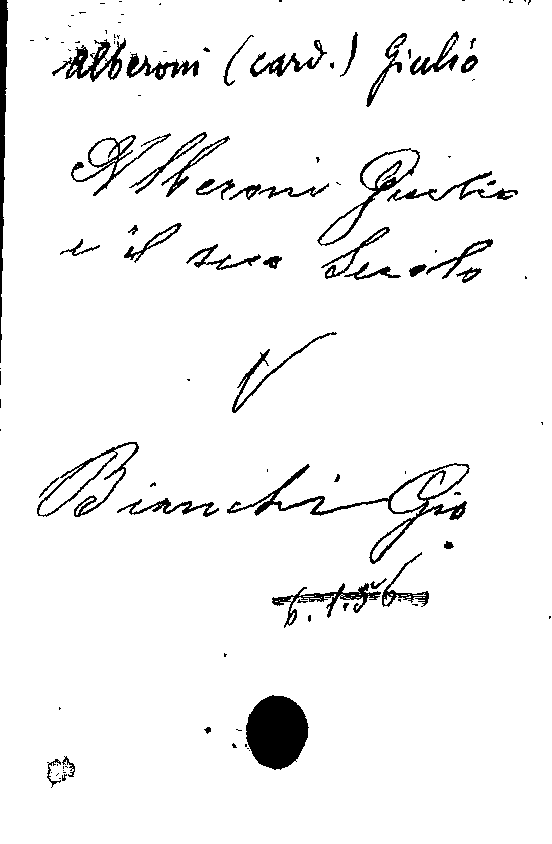 Alberoni (card.) Giulio
Alberoni Giulio
e il suo Secolo
V
Bianchi Gio
6.1.56